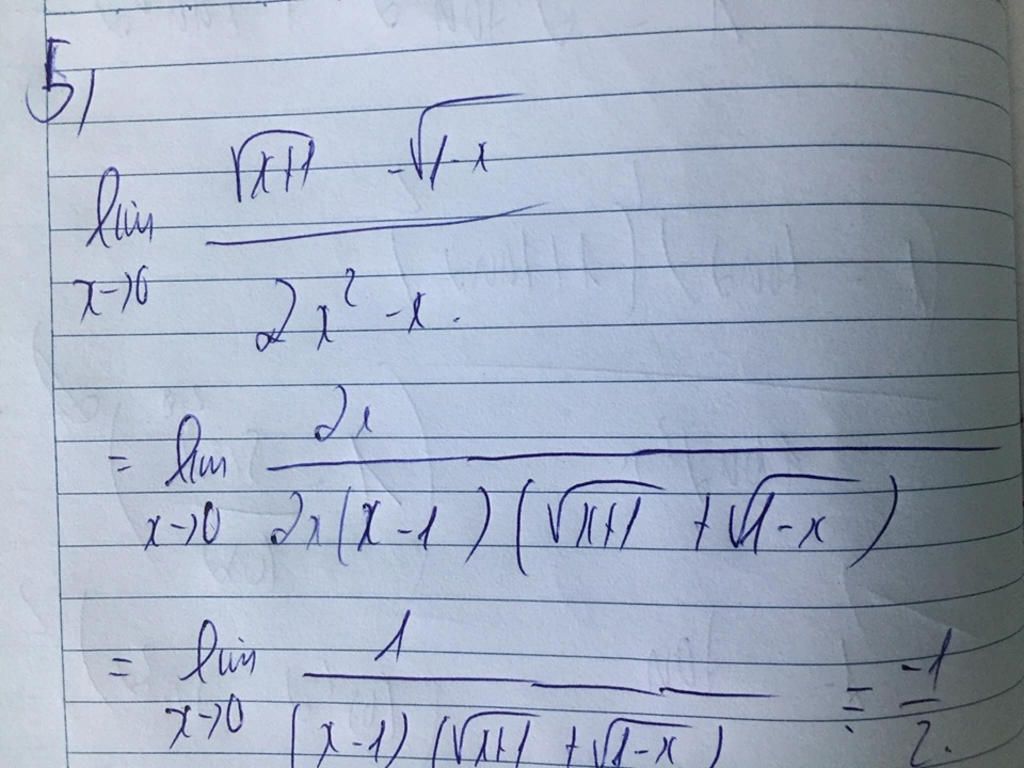 5)
lim x→0 (√(x+1) - √(1-x)) / (2x² - x).
= lim x→0 2x / (2x(x-1)(√(x+1) + √(1-x)))
= lim x→0 1 / ((x-1)(√(x+1) + √(1-x))) = -1/2.